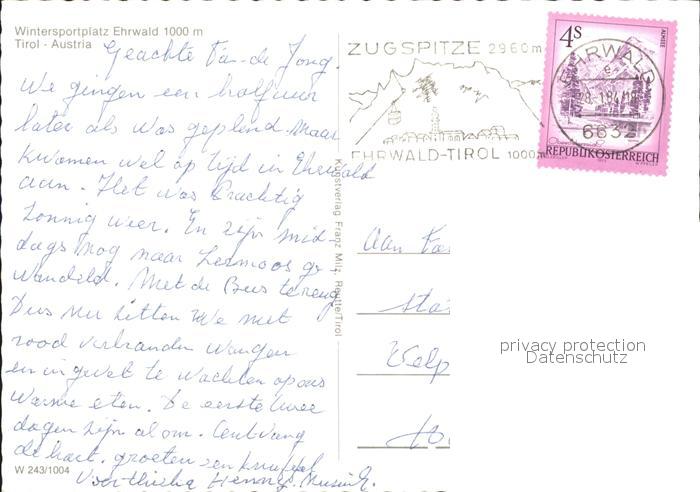 Wintersportplatz Ehrwald 1000 m
Tirol - Austria
Geachte Fa. de Jong.
We gingen een half uur
later als was geplend. Maar
kwamen wel op tijd in Ehrwald
aan. Het was Prachtig
Zonnig weer. En zijn mid-
dags nog naar Lermoos ge
wandeld. Met de Bus terug
Dus nu zitten we met
rood verbranden wangen
en in gevet te wachten op ons
warme eten. De eerste twee
dagen zijn al om.
de hart. groeten
W 243/1004
Kunstverlag Franz Milz, Reutte/Tirol
ZUGSPITZE 2960m
EHRWALD-TIROL 1000m
4S
ALMSEE
EHRWALD
6632
REPUBLIK ÖSTERREICH
Aan Fa
Sta
Welp
privacy protection
Datenschutz